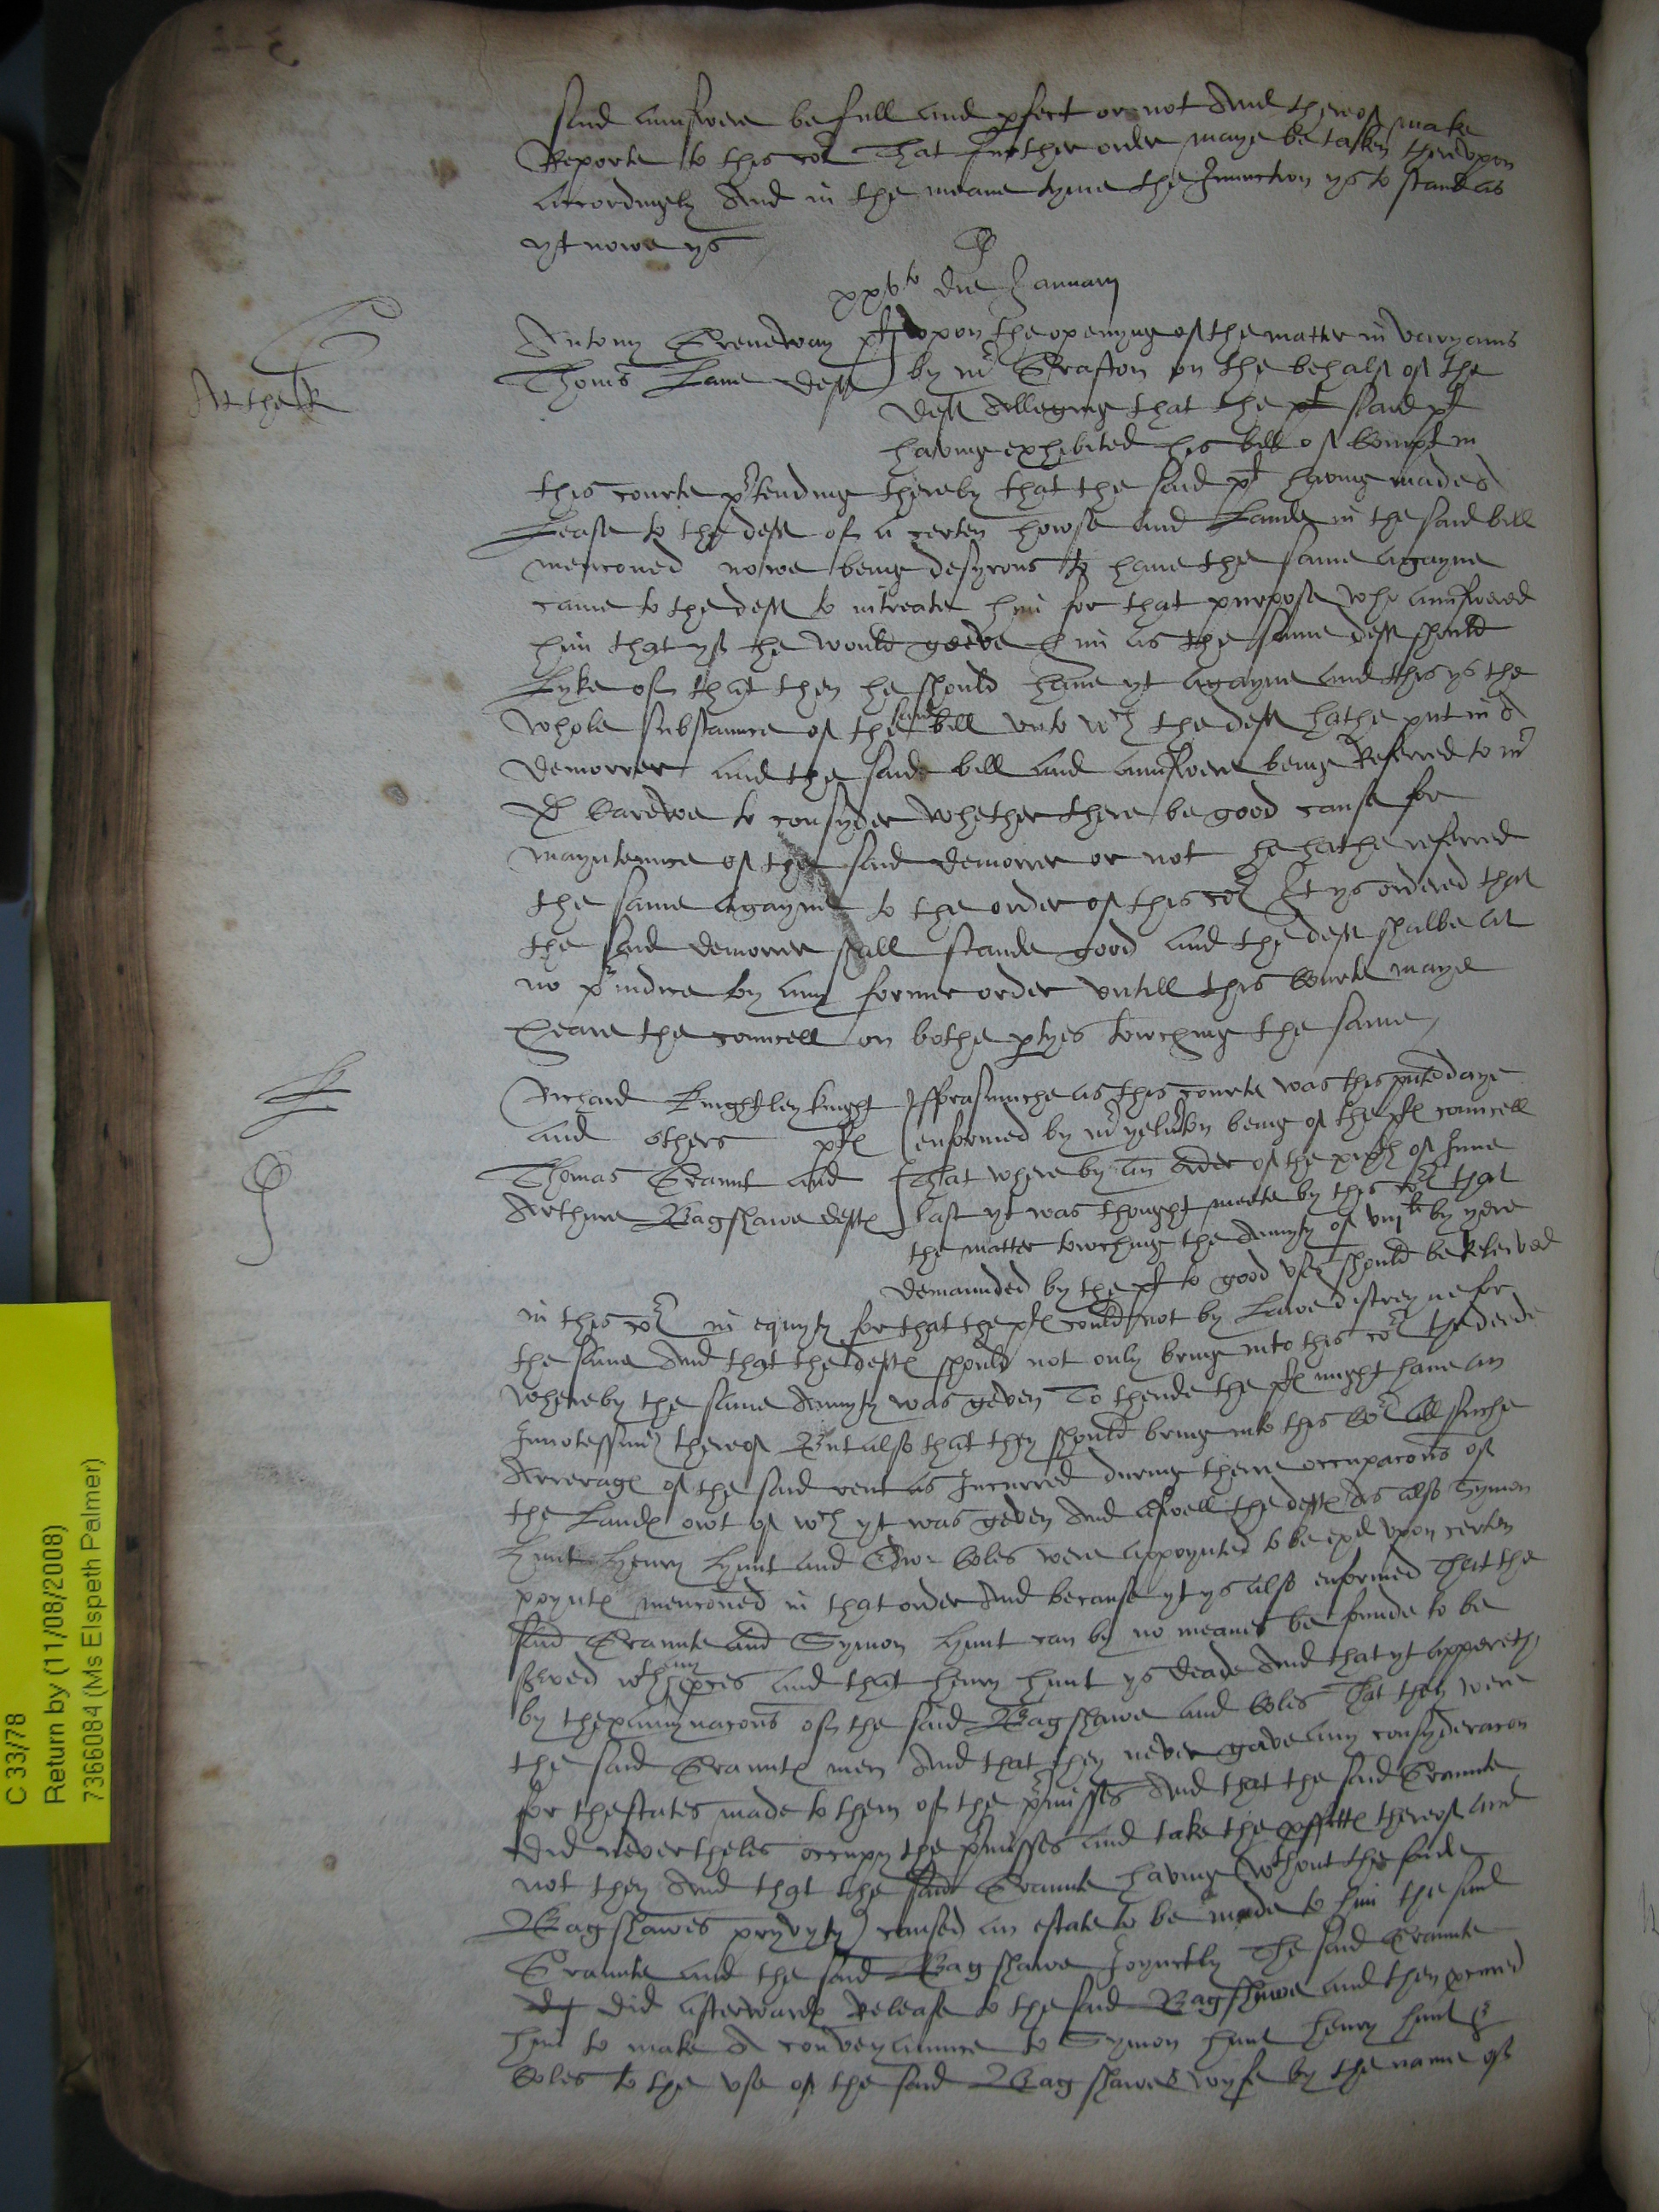 said aunswere be full and pfect or not And thereof make
Reporte to this cot That further order maye be taken therevpon
accordingly And in the meane tyme the Iniunction ys to stand as
yt nowe ys
xxvto die Januarij
Antony Greneway pt vpon the openyng of the matter in varyauns
Thoms Lane deft by mr Grafton on the behalf of the
deft Alleging that the pt said pt
having exhibited his bill of Compt in
this courte ptending thereby that the said pt having made a
Lease to the deft of a certen howse and Lande in the said bill
mencioned nowe being desyrous to have the same agayne
came to the deft to intreate him for that purpose who aunswered
him that yf he would geeve him as the same deft should
Lyke of that then he should have yt agayne and this ys the
whole substaunce of the said bill vnto wch the deft hathe put in a
demorrer and the saide bill and aunswere being Referred to mr
D Carewe to consyder whether there be good cause for
mayntenance of the said demorrer or not he hathe referred
the same agayne to the order of this cot It ys ordered that
the said demorrer shall stande good and the deft shalbe at
no piudice by any former order vntill this Courte maye
heare the councell on bothe ptyes towching the same
Richard Knightley knight fforasmuche as this courte was this pnte daye
and others ptes enformed by mr yelverton being of the ptes councell
Thomas Graunt and That where by an order of the xixth of June
Arthure Bagshawe deftes last yt was thought meete by this cot that
the matter towching the Annuyty of viijli by yere
demaunded by the pt to good vses should be Releived
in this cot in equyty for that the ptes could not by Lawe distreyne for
the same And that the deftes should not only bring into this cot the deede
whereby the same Annuyty was geven To thende the ptes might have an
Innotessim thereof But also that they should bring into this Cot all suche
Arrerages of the said rent as Incurred during theire occupacons of
the Landes owt of wch yt was geven And aswell the deftes As also Symon
Hunt Henry Hunt and Edw Coles were appoynted to be exd vpon certen
poyntes mencioned in that order And because yt ys also enformed That the
said Graunte and Symon Hunt can by no meanes be founde to be
served wth any pces and that henry hunt ys deade And that yt appereth
by thexaminacons of the said Bagshawe and Coles That they were
the said Grauntes men And that they never gave any consyderacon
for thestates made to them of the pmisses And that the said Graunte
did nevertheles occupy the pmisses and take the pffittes thereof and
not they And that the said Graunte having (wthout the saide
Bagshawes pryvyty) caused an estate to be made to him the said
Graunte and the said Bagshawe Joynctly The said Graunte
did afterwardes Release to the said Bagshawe and then pcured
him to make A conveyaunce to Symon hunt henry hunt &
Coles to the vse of the said Bagshawes wyfe by the name of
C 33/78
Return by (11/08/2008)
7366084 (Ms Elspeth Palmer)